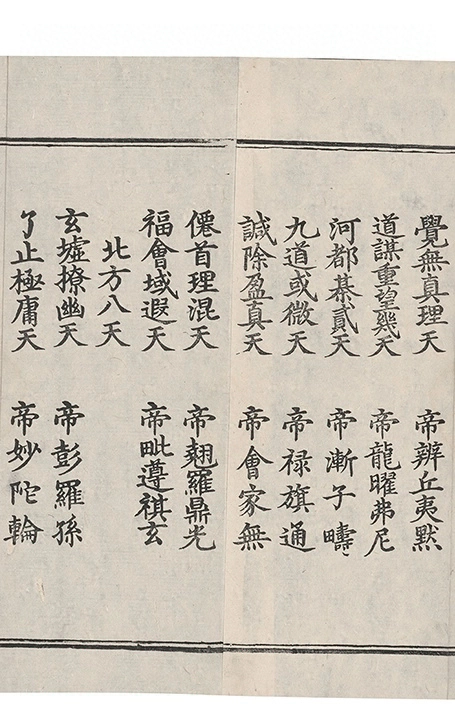 覺無真理天　帝辨丘夷默
道謀重望幾天　帝龍曜弗尼
河都棊貳天　帝漸子疇
九道或微天　帝禄旗通
諴除盈真天　帝會家無
僊首理混天　帝翘羅鼎光
福會域遐天　帝毗遵祺玄
北方八天
玄墟撩幽天　帝彭羅孫
了止極庸天　帝妙陀輪